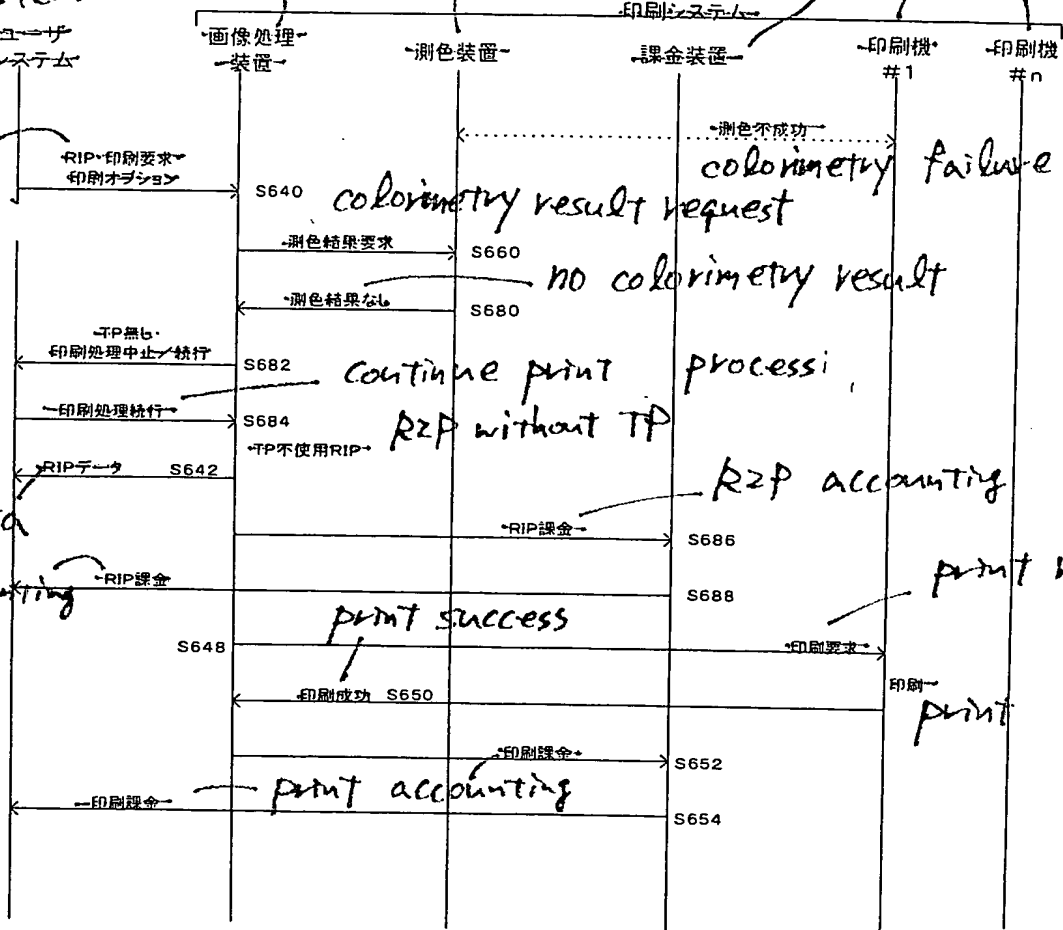 印刷システム
ユーザ
システム
画像処理
装置
測色装置
課金装置
印刷機
#1
印刷機
#n
測色不成功
colorimetry failure
RIP・印刷要求
印刷オプション
S640
colorimetry result request
測色結果要求
S660
no colorimetry result
測色結果なし
S680
TP無し
印刷処理中止/続行
S682
continue print
印刷処理続行
S684
TP不使用RIP
RIP without TP
RIPデータ
S642
RIP accounting
RIP課金
S686
RIP課金
S688
print
print success
S648
印刷要求
印刷成功
S650
印刷
print
印刷課金
S652
print accounting
印刷課金
S654